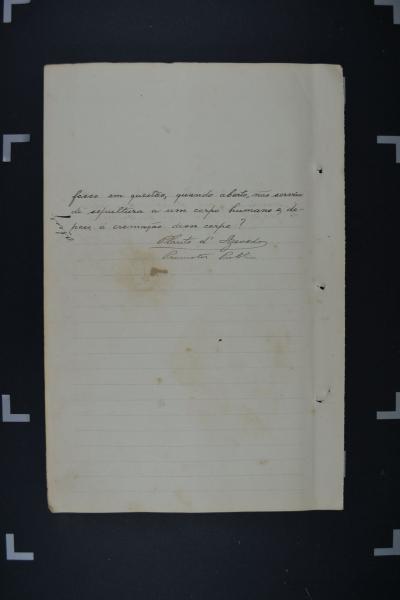 fosso em questão, quando aberto, não serviu
de sepultura a um corpo humano e, de-
pois, á cremação desse corpo?
Plauto d' Azevedo
Promotor Publ